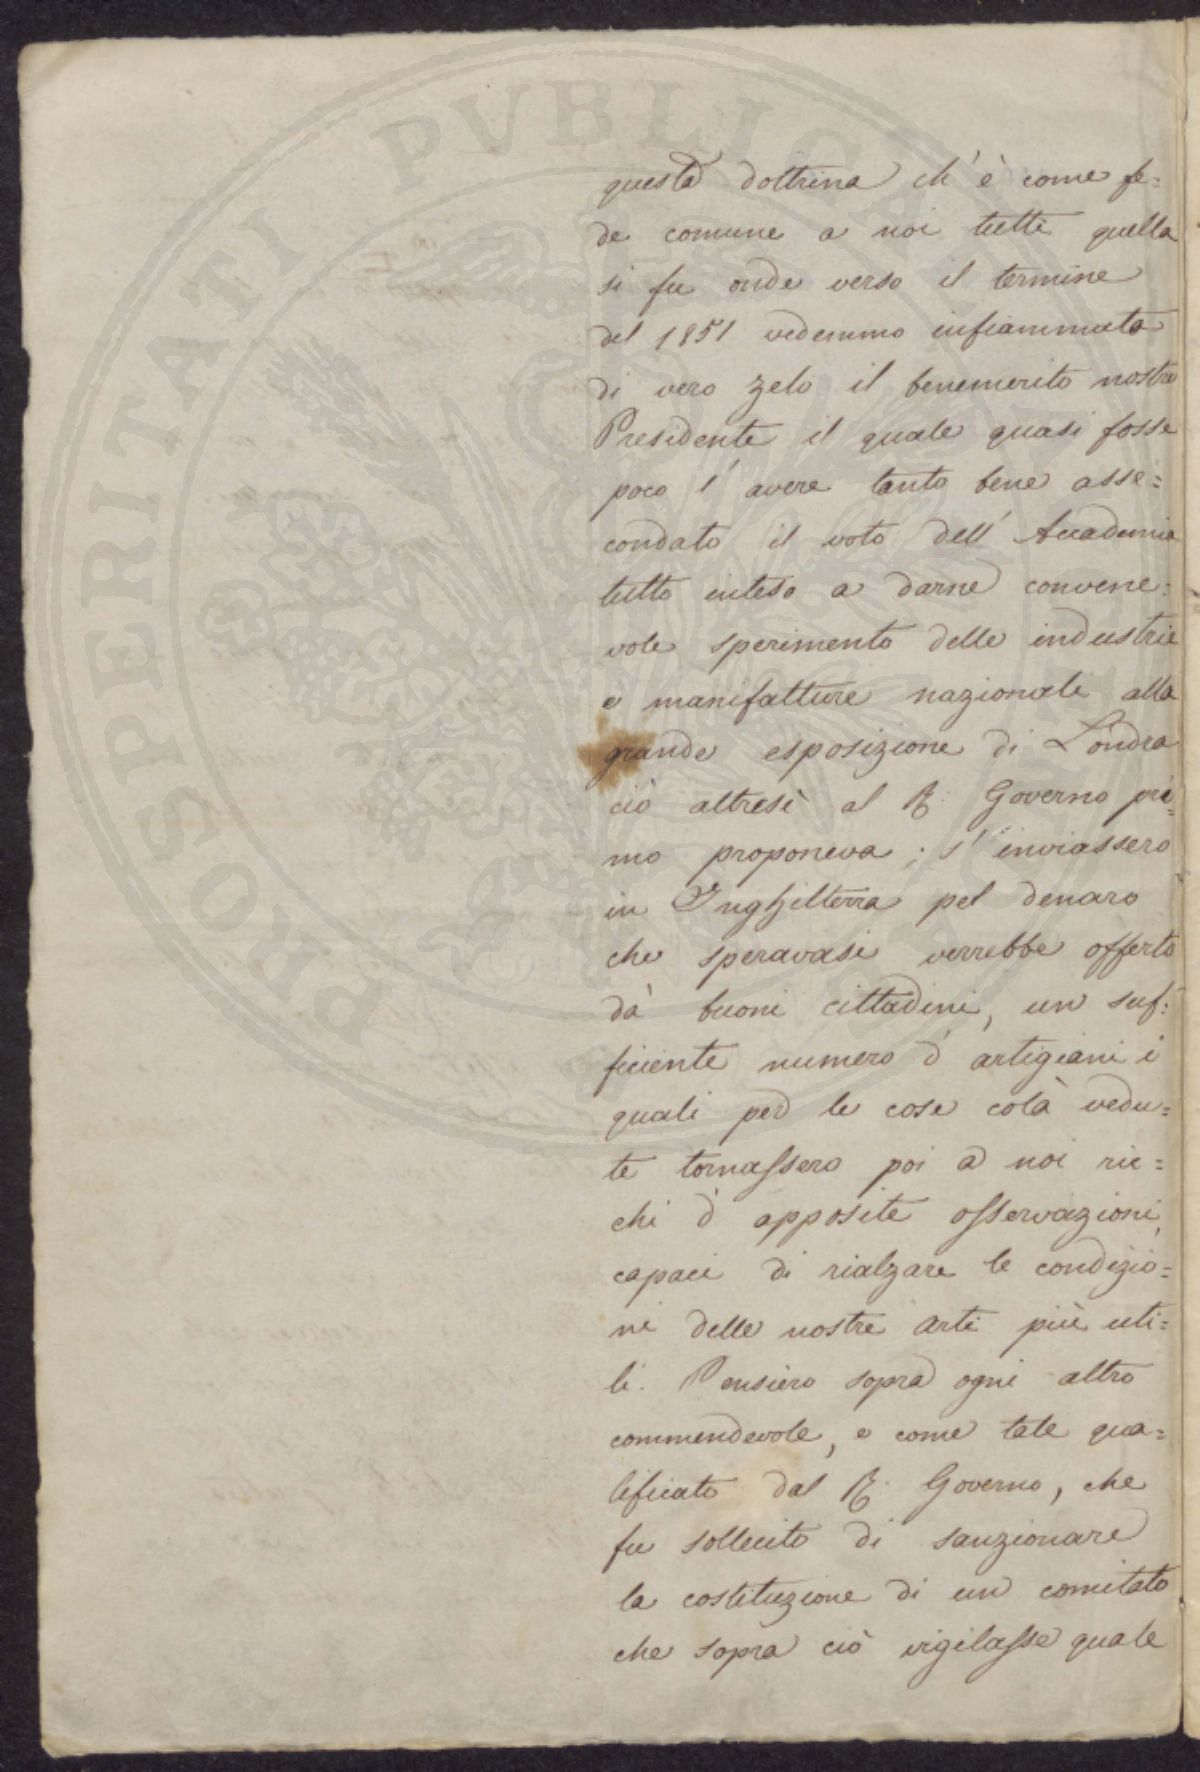 PROSPERITATI PVBLICAE
questa dottrina ch'è come fe=
de comune a noi tutti quella
si fu onde verso il termine
del 1851 vedemmo infiammato
di vero zelo il benemerito nostro
Presidente il quale quasi fosse
poco l'avere tanto bene asse=
condato il voto dell'Accademia
tutto inteso a darne convene=
vole sperimento delle industrie
e manifatture nazionali alla
grande esposizione di Londra
ciò altresì al R. Governo pri=
mo proponeva; s'inviassero
in Inghilterra pel denaro
che speravasi verrebbe offerto
dà buoni cittadini, un suf=
ficiente numero d'artigiani i
quali per le cose colà vedu=
te tornassero poi a noi ric=
chi d'apposite osservazioni,
capaci di rialzare le condizio=
ni delle nostre arti più uti=
li. Pensiero sopra ogni altro
commendevole, e come tale qua=
lificato dal R. Governo, che
fu sollecito di sanzionare
la costituzione di un comitato
che sopra ciò vigilasse quale